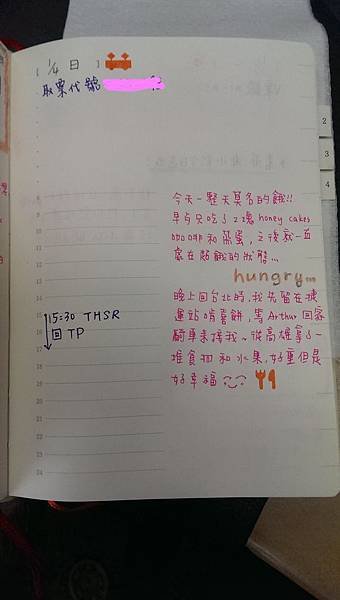 1/4 日
取票代號
2
3
4
今天一整天莫名的餓!!
早点只吃了2塊 honey cakes
咖啡和茶蛋,之後就一直
處在飢餓的狀態...
hungry
晚上回台北時,我先留在捷
運站啃喜餅,等Arthur回家
騎車來接我~從高雄拿了一
堆食物和水果,好重但是
好幸福
15:30 THSR
回TP
8
9
10
11
12
13
14
15
16
17
18
19
20
21
22
23
24